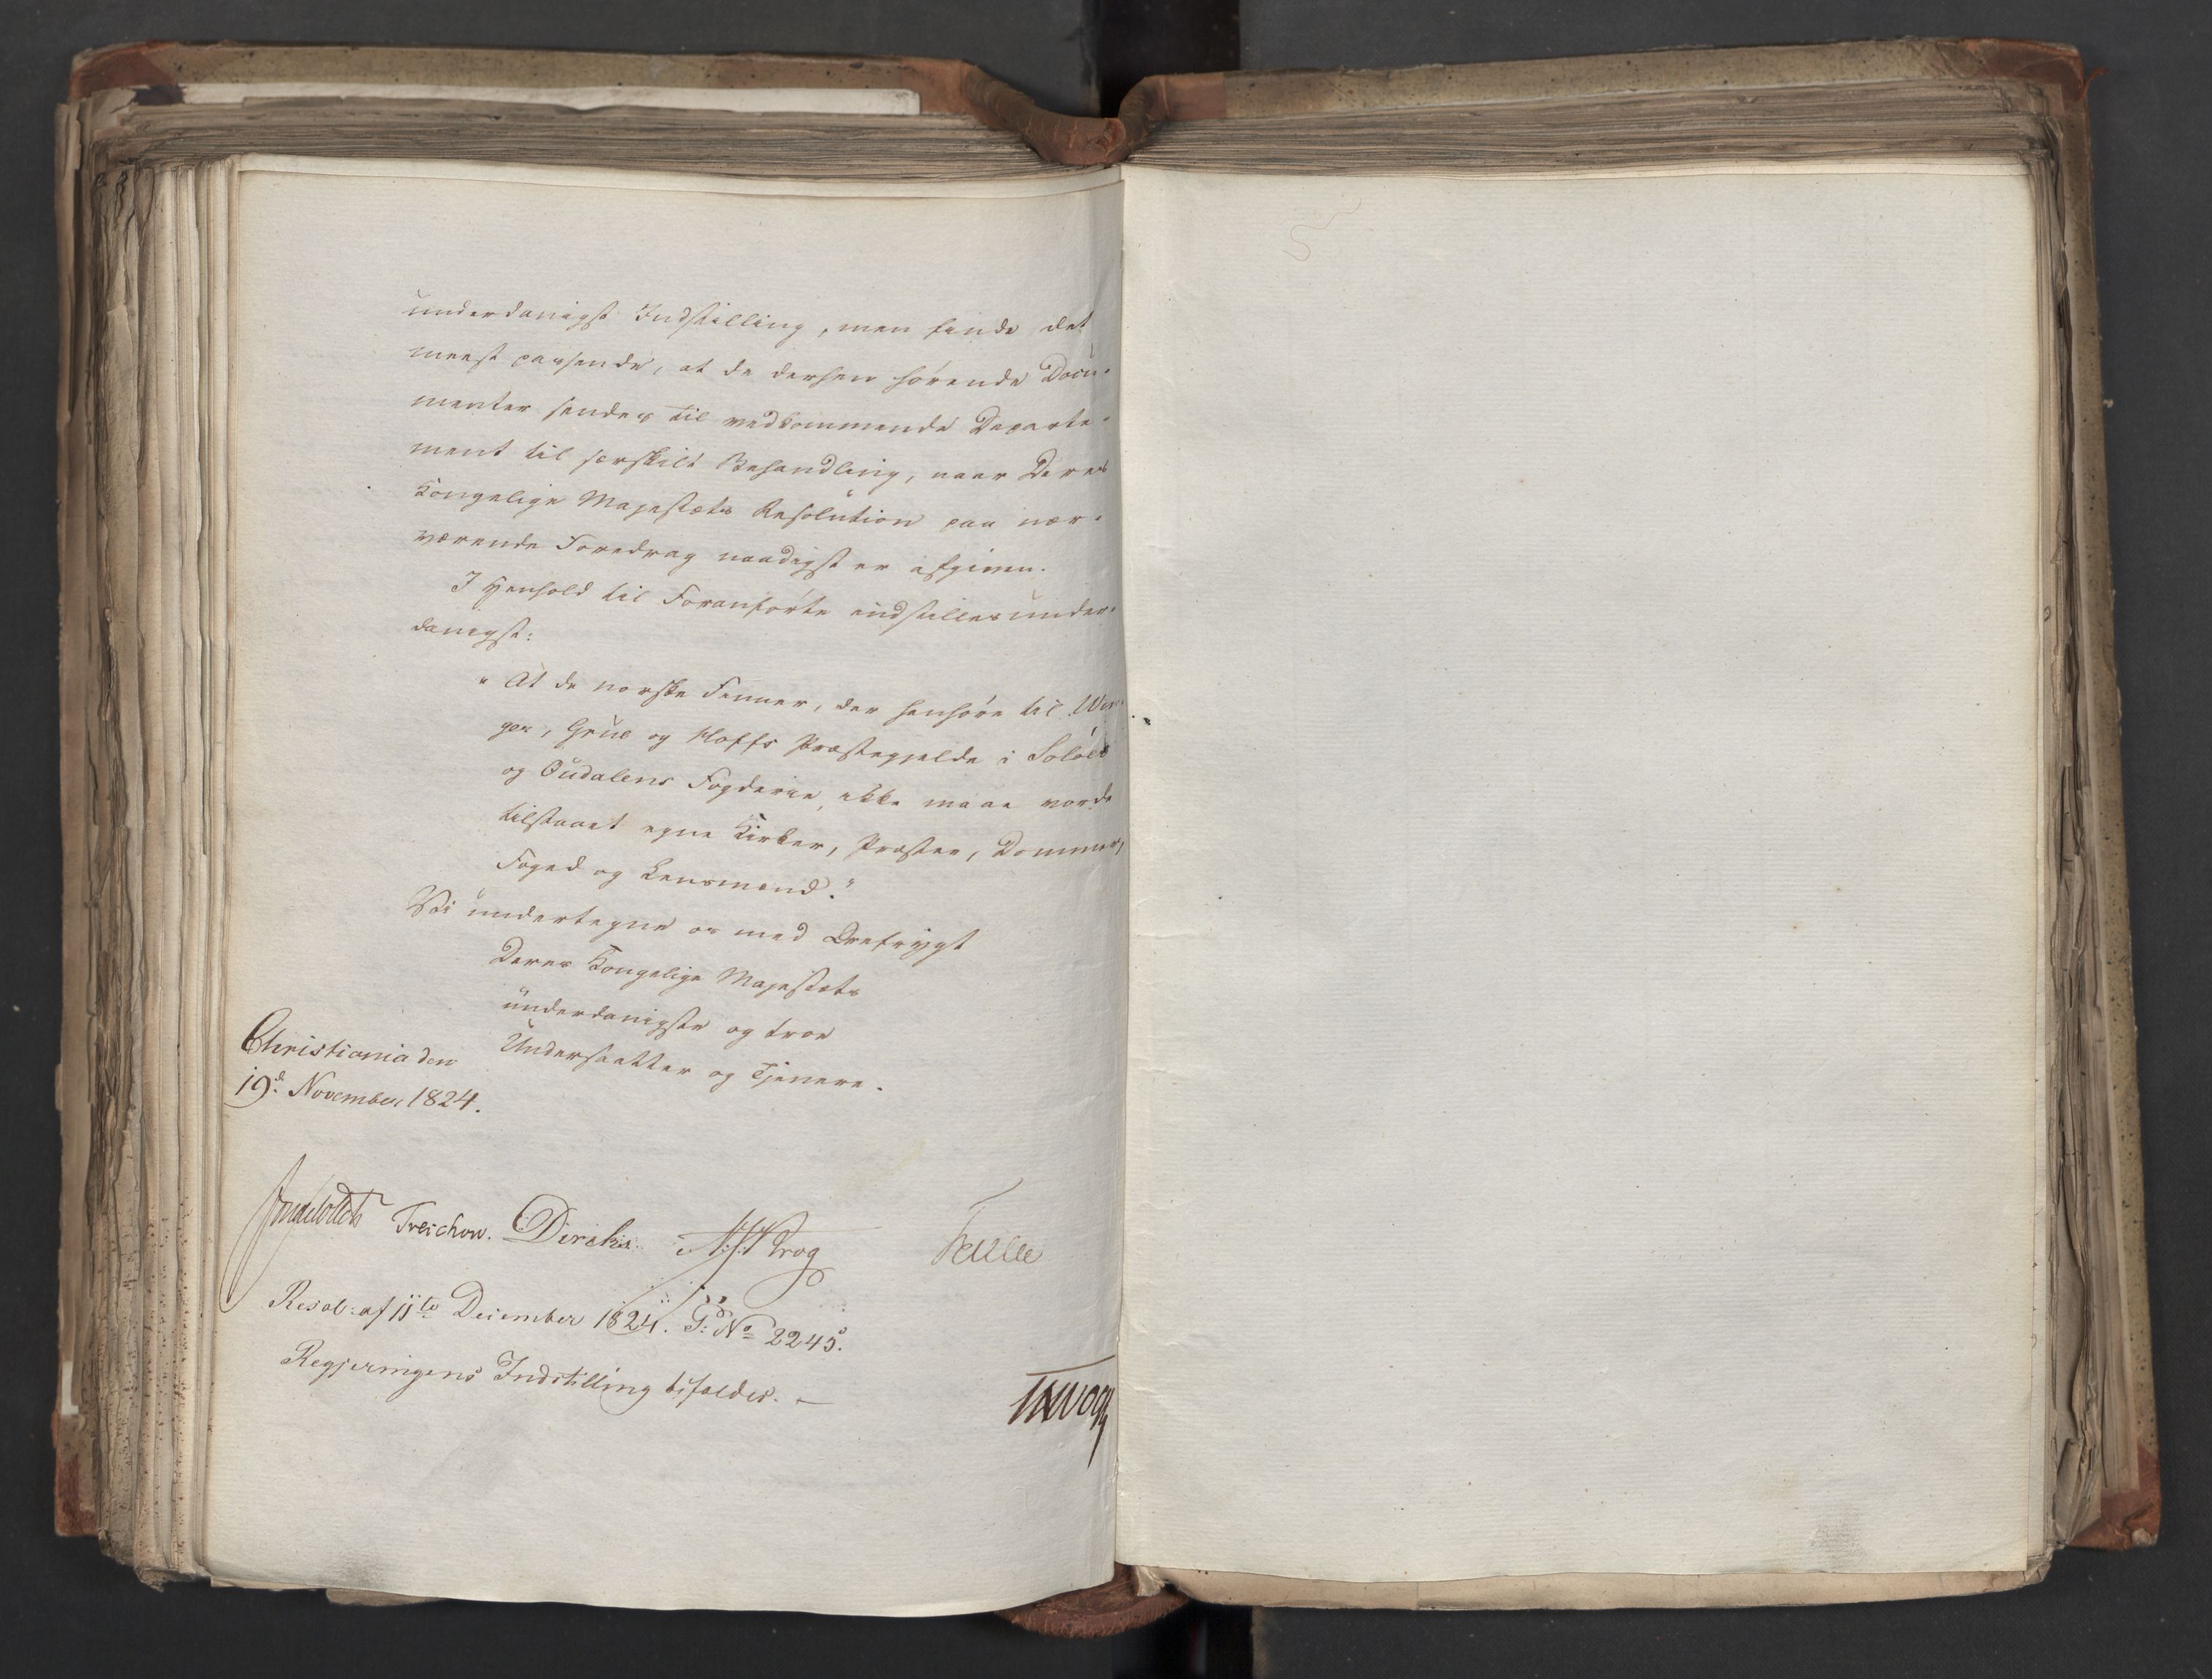 underdanigst Indstilling, men finde det
meest passende, at de derhen hørende Docu-
menter sendes til vedkommende Departe-
ment til særskilt Behandling, naar Deres
Kongelige Majestæts Resolution paa nær-
værende Foredrag naadigst er afgiven.
I Henhold til Foranførte indstilles under-
danigst:
"At de norske Finner, der henhøre til Vin-
ger, Grue og Hoffs Præstegjelde i Solöer
og Oudalens Fogderie, ikke maae vorde
tilstaaet egne Kirker, Præster, Dommer,
Foged og Lensmænd."
Vi undertegne os med Ærefrygt
Deres Kongelige Majestæts
underdanigste og troe
Undersaatter og Tjenere.
Christiania den
19d. November 1824.
Treschow. Diriks. Krog
Resol: af 11te December 1824. G: No 2245.
Regjeringens Indstilling bifaldes. —